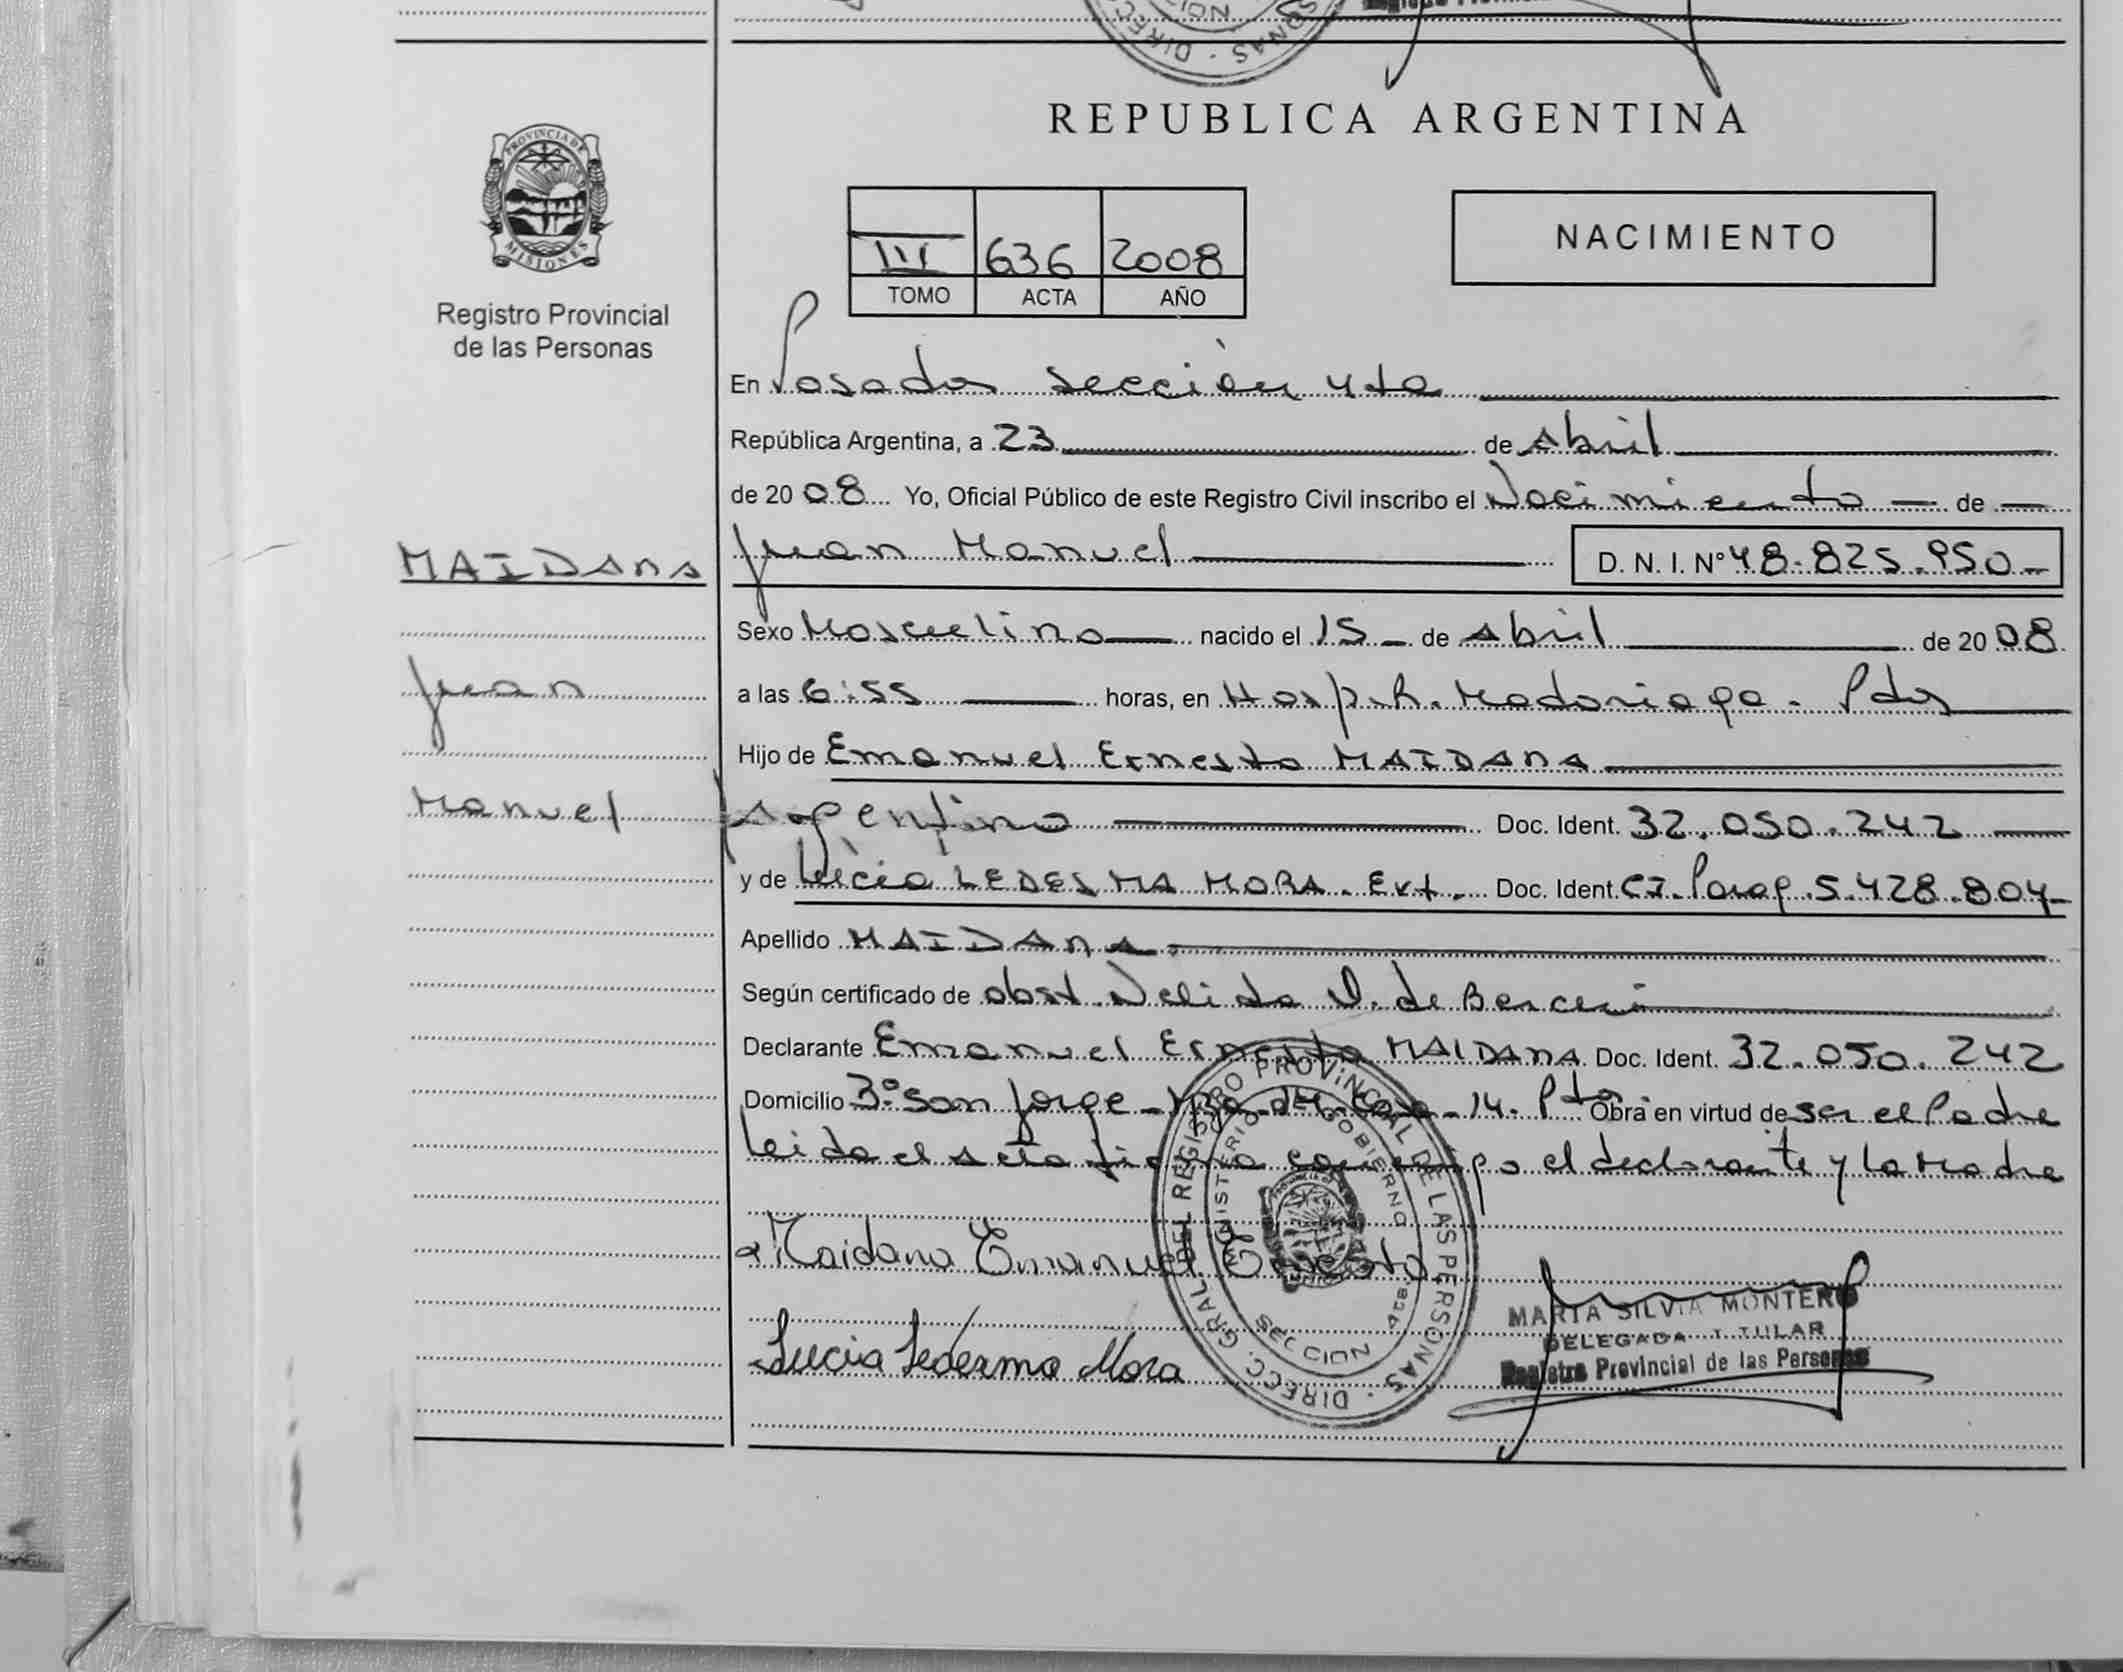 REPUBLICA ARGENTINA
PROVINCIA DE
MISIONES
Registro Provincial
de las Personas
III 636 2008
TOMO ACTA AÑO
NACIMIENTO
En Posadas sección 4ta
República Argentina, a 23 de Abril
de 2008 Yo, Oficial Público de este Registro Civil inscribo el Nacimiento de
MAIDANA
Juan Manuel D. N. I. Nº 48.825.950
Sexo Masculino nacido el 15 de Abril de 2008
Juan
a las 6:55 horas, en Hosp. R. Madariaga. Pdas
Hijo de Emanuel Ernesto MAIDANA
Manuel
Argentino Doc. Ident. 32.050.242
y de Lucia LEDESMA MORA. Ext. Doc. Ident. CI. Parag. 5.428.804
Apellido MAIDANA
Según certificado de obst. Nelida de
Declarante Emanuel Ernesto MAIDANA Doc. Ident. 32.050.242
Domicilio Bº San Jorge - Casa - 14. Pdas Obra en virtud de ser el Padre
Leida el acta firma conmigo el declarante y la Madre
Maidana Emanuel Ernesto
Lucia Ledezma Mora
DIRECC. GRAL. DEL REGISTRO PROVINCIAL DE LAS PERSONAS
MINISTERIO DE GOBIERNO
SECCION 4ta
MARIA SILVIA MONTERO
DELEGADA TITULAR
Registro Provincial de las Personas